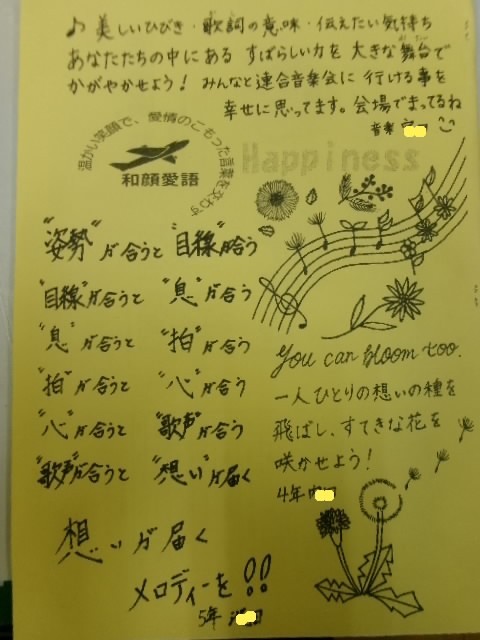 ♪美しいひびき・歌詞の意味・伝えたい気持ち
あなたたちの中にある すばらしい力を 大きな舞台で
かがやかせよう! みんなと連合音楽会に 行ける事を
幸せに思ってます。会場でまってるね
音楽
温かい笑顔で、愛情のこもった言葉を交わす
和顔愛語
Happiness
"姿勢"が合うと"目線"が合う
"目線"が合うと "息"が合う
"息"が合うと "拍"が合う
"拍"が合うと "心"が合う
"心"が合うと "歌声"が合う
"歌声"が合うと "想い"が届く
想いが届く
メロディーを!!
5年
You can bloom too.
一人ひとりの想いの種を
飛ばし、すてきな花を
咲かせよう!
4年